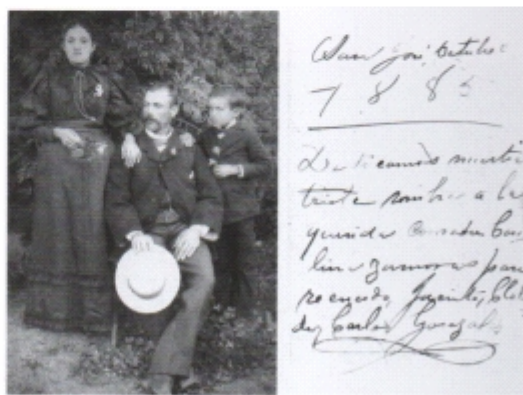 San José, Octubre
1885
Dedicamos nuestra
triste sombra a la
querida Comadre
lina Zamora para
recuerdo Jacinto, Clo
y Carlos Gonzal